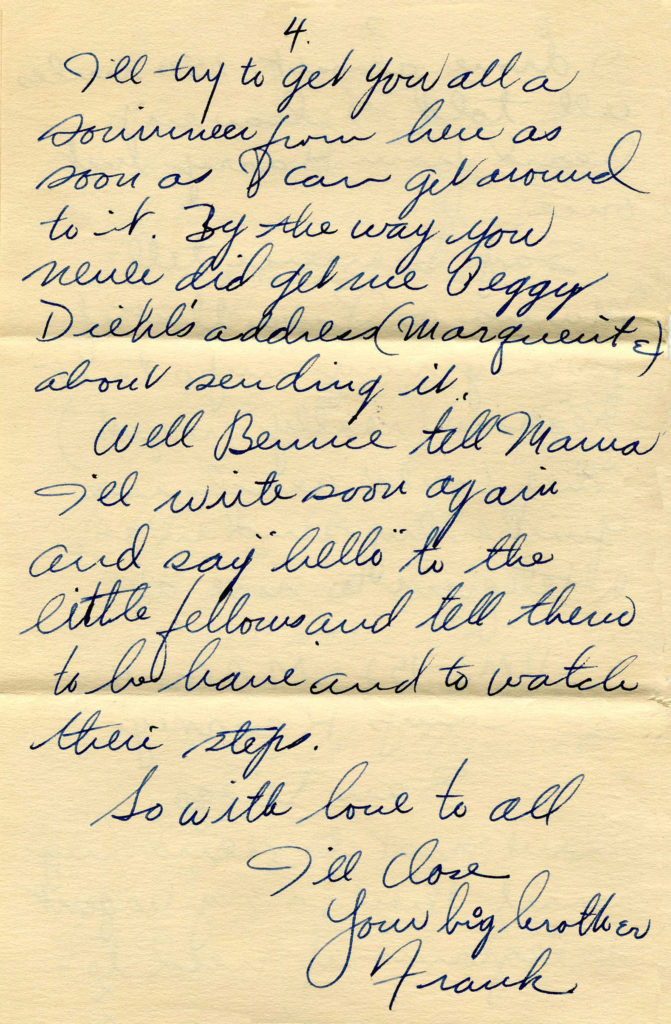 4.
I'll try to get you all a
souvineer from here as
soon as I can get around
to it. By the way you
never did get me Peggy
Diehl's address (Marguerite)
about sending it.
Well Bernice tell Mama
I'll write soon again
and say "hello" to the
little fellows and tell them
to be have and to watch
their steps.
So with love to all
I'll close
Your big brother
Frank.